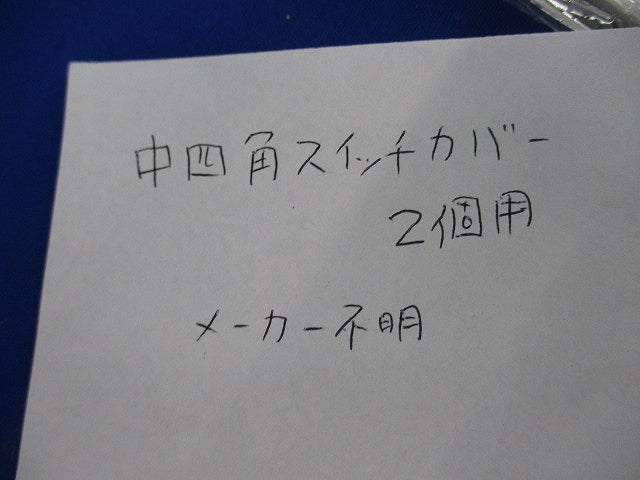 中四角スイッチカバー
2個用
メーカー不明